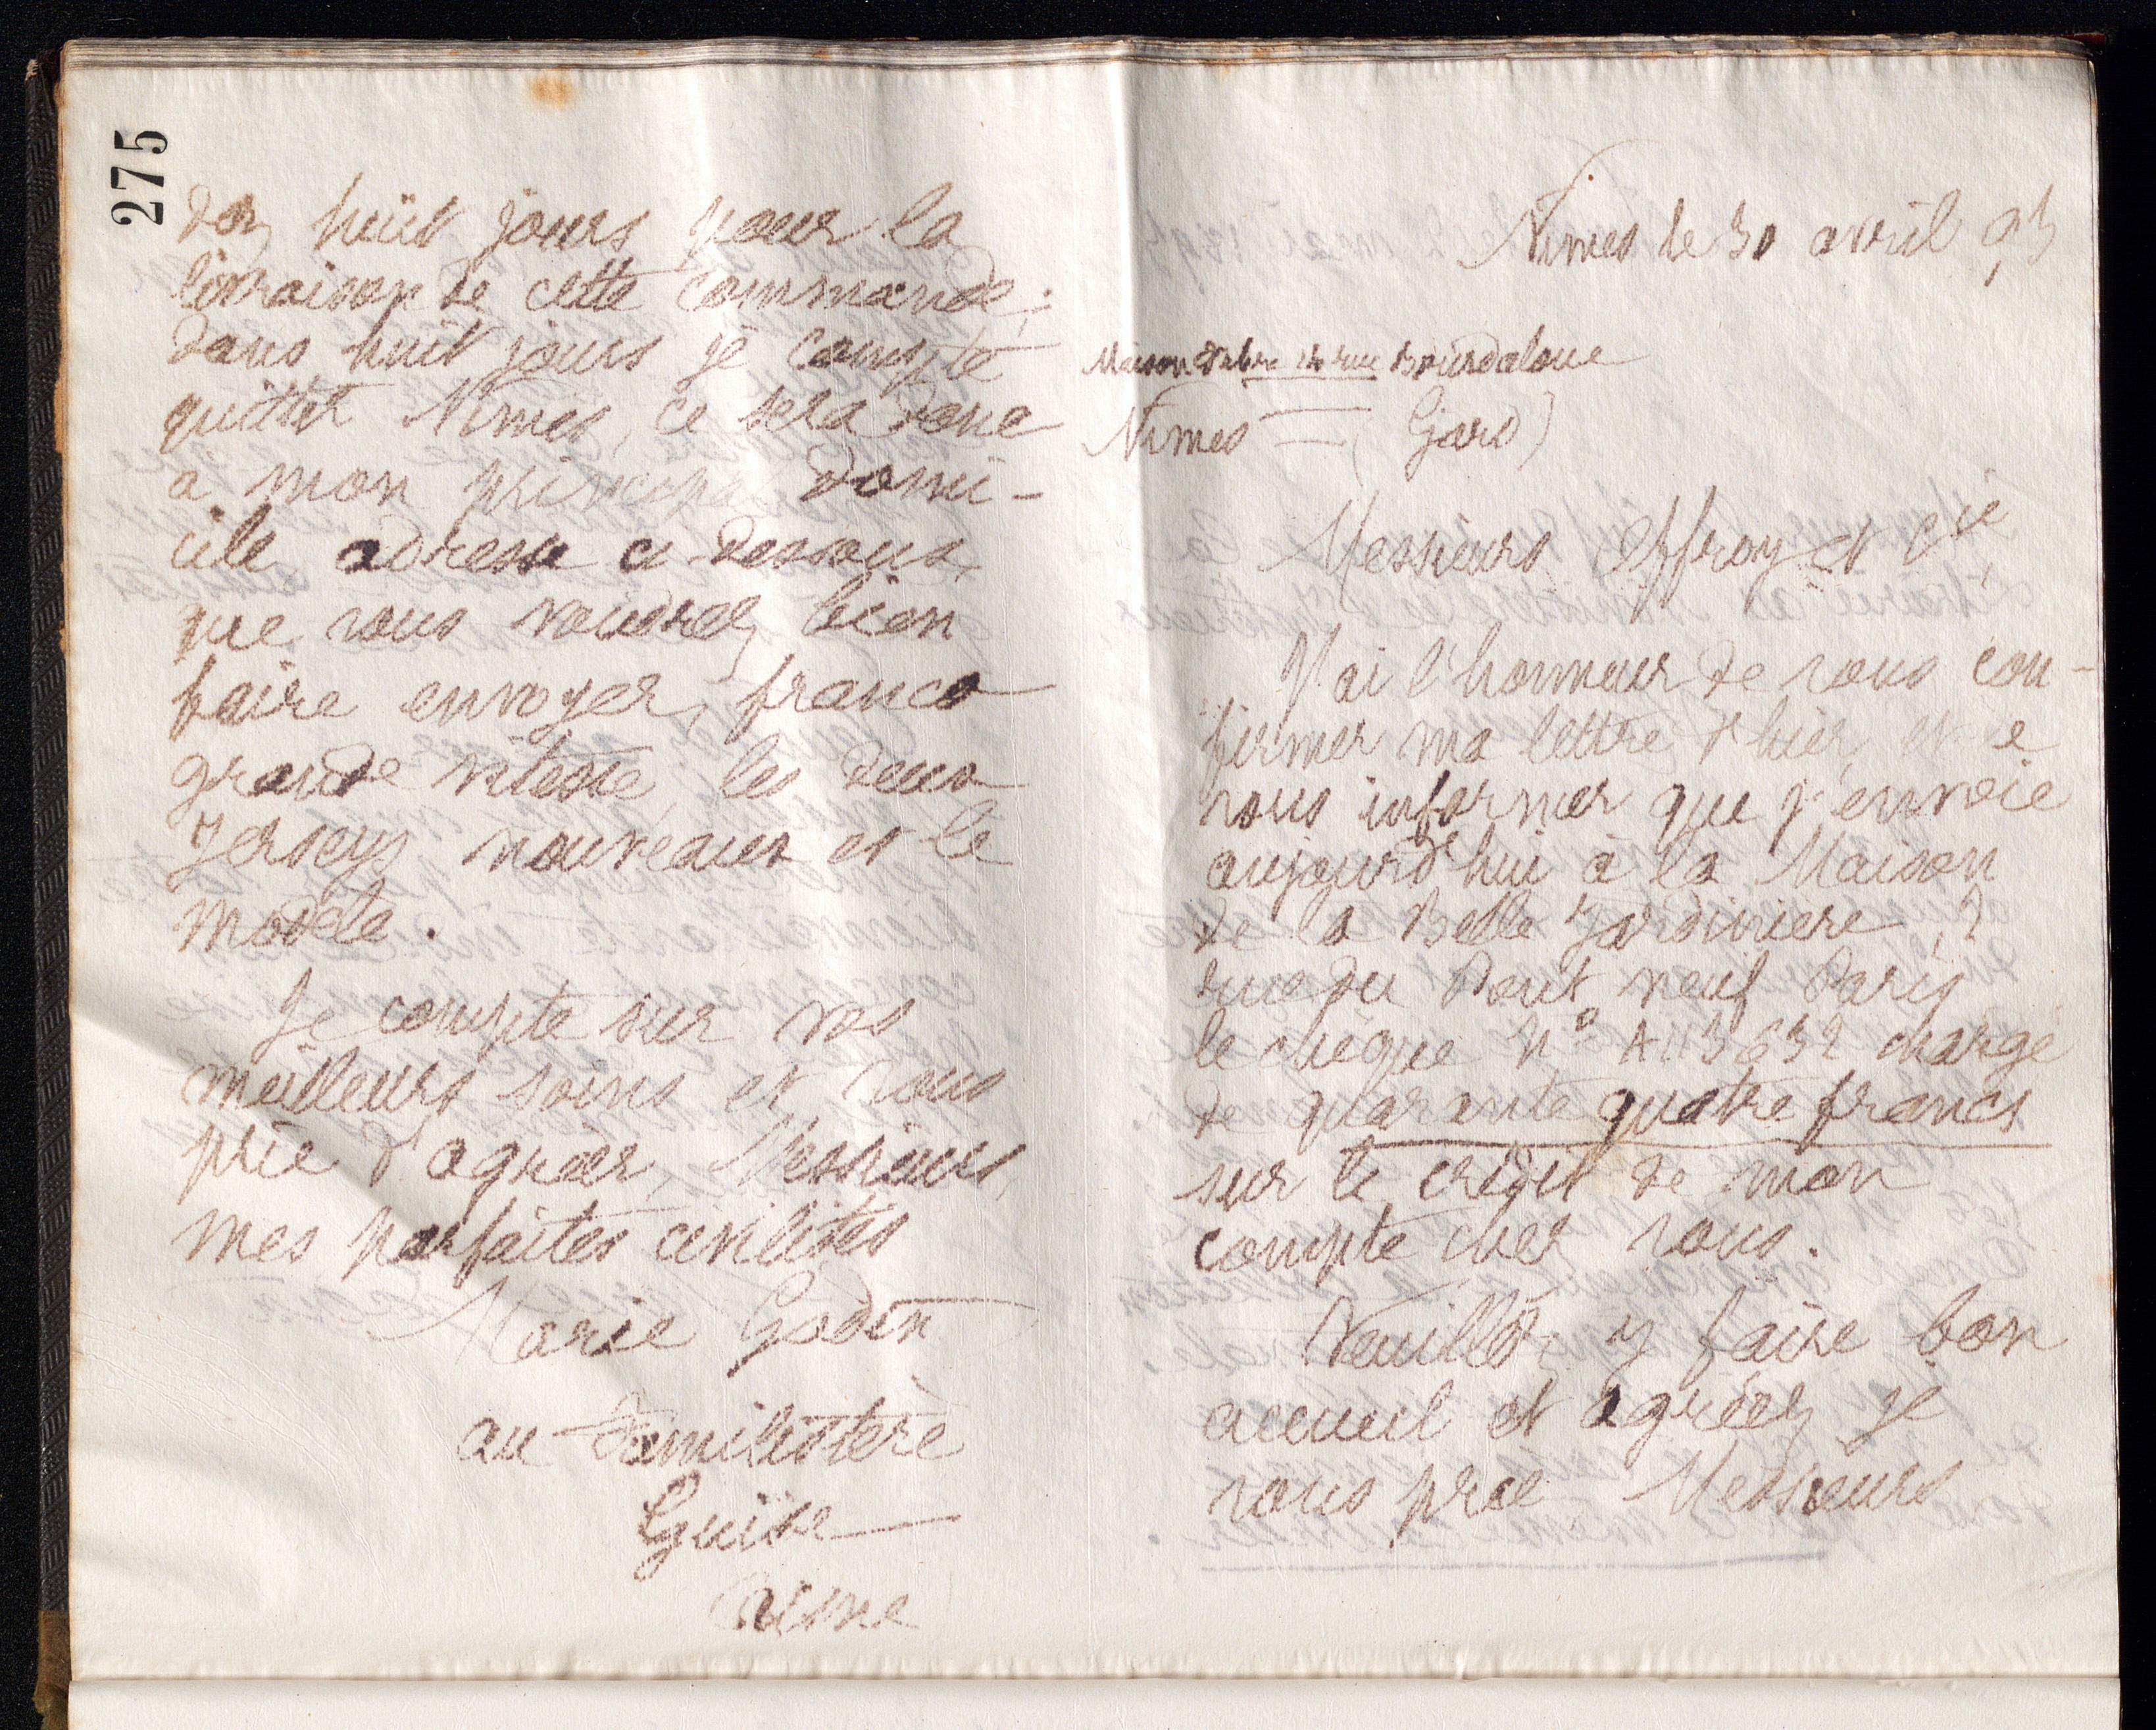 275
dez huit jours pour la
livraison de cette commande;
dans huit jours je compte
quitter Nîmes, ce sera donc
a mon principal domi-
cile adresse ci-dessous,
que vous voudrez bien
faire envoyer, franco
grande vitesse, les deux
Jerseys nouveaux et le
modèle.
Je compte sur vos
meilleurs soins et vous
prie d'agréer, Messieurs,
mes parfaites civilités
Marie Godin
au Familistère
Guise
Aisne
Nîmes le 30 avril 95
Maison Fabre 14 rue Bourdaloue
Nîmes — (Gard)
Messieurs Effroy et Cie,
J'ai l'honneur de vous con-
firmer ma lettre d'hier, et de
vous informer que j'envoie
aujourd'hui à la Maison
de la Belle Jardinière, 2
rue du Pont neuf Paris
le chèque No chargé
de quarante quatre francs
sur le crédit de mon
compte chez vous.
Veuillez y faire bon
accueil et agréez je
vous prie Messieurs